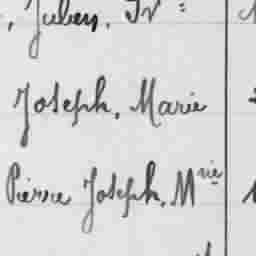 , Julien, Fr :
Joseph, Marie
Pierre Joseph, Mrie